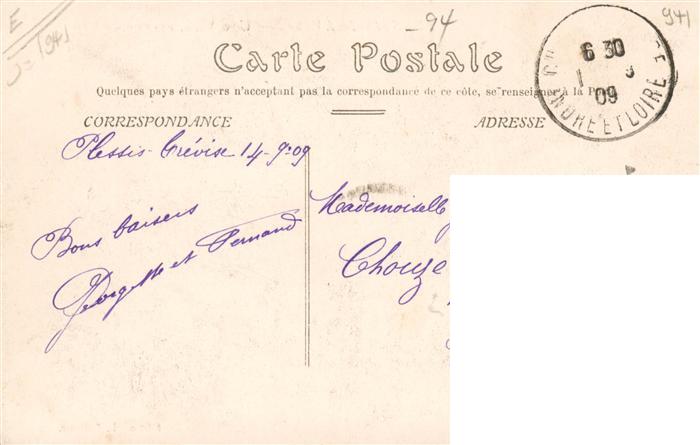 E
J = (941
-94
941
Carte Postale
Quelques pays étrangers n'acceptant pas la correspondance de ce côte, se renseigner à la P
CORRESPONDANCE
ADRESSE
6 30
09
INDRE ET LOIRE
Plessis-Trévise 14-9-09
Bons baisers
Georgette et Fernand
Mademoiselle
Chouze